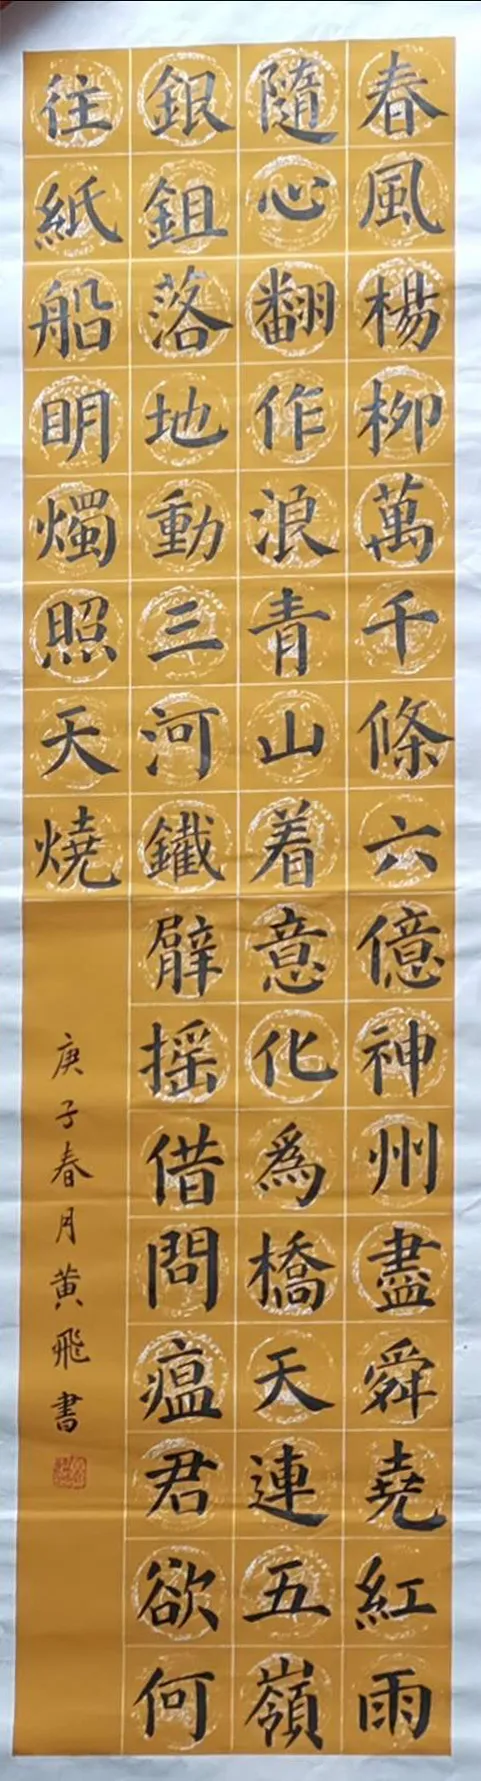 春風楊柳萬千條六億神州盡舜堯紅雨
隨心翻作浪青山着意化為橋天連五嶺
銀鉏落地動三河鐵臂搖借問瘟君欲何
往紙船明燭照天燒
庚子春月黄飛書